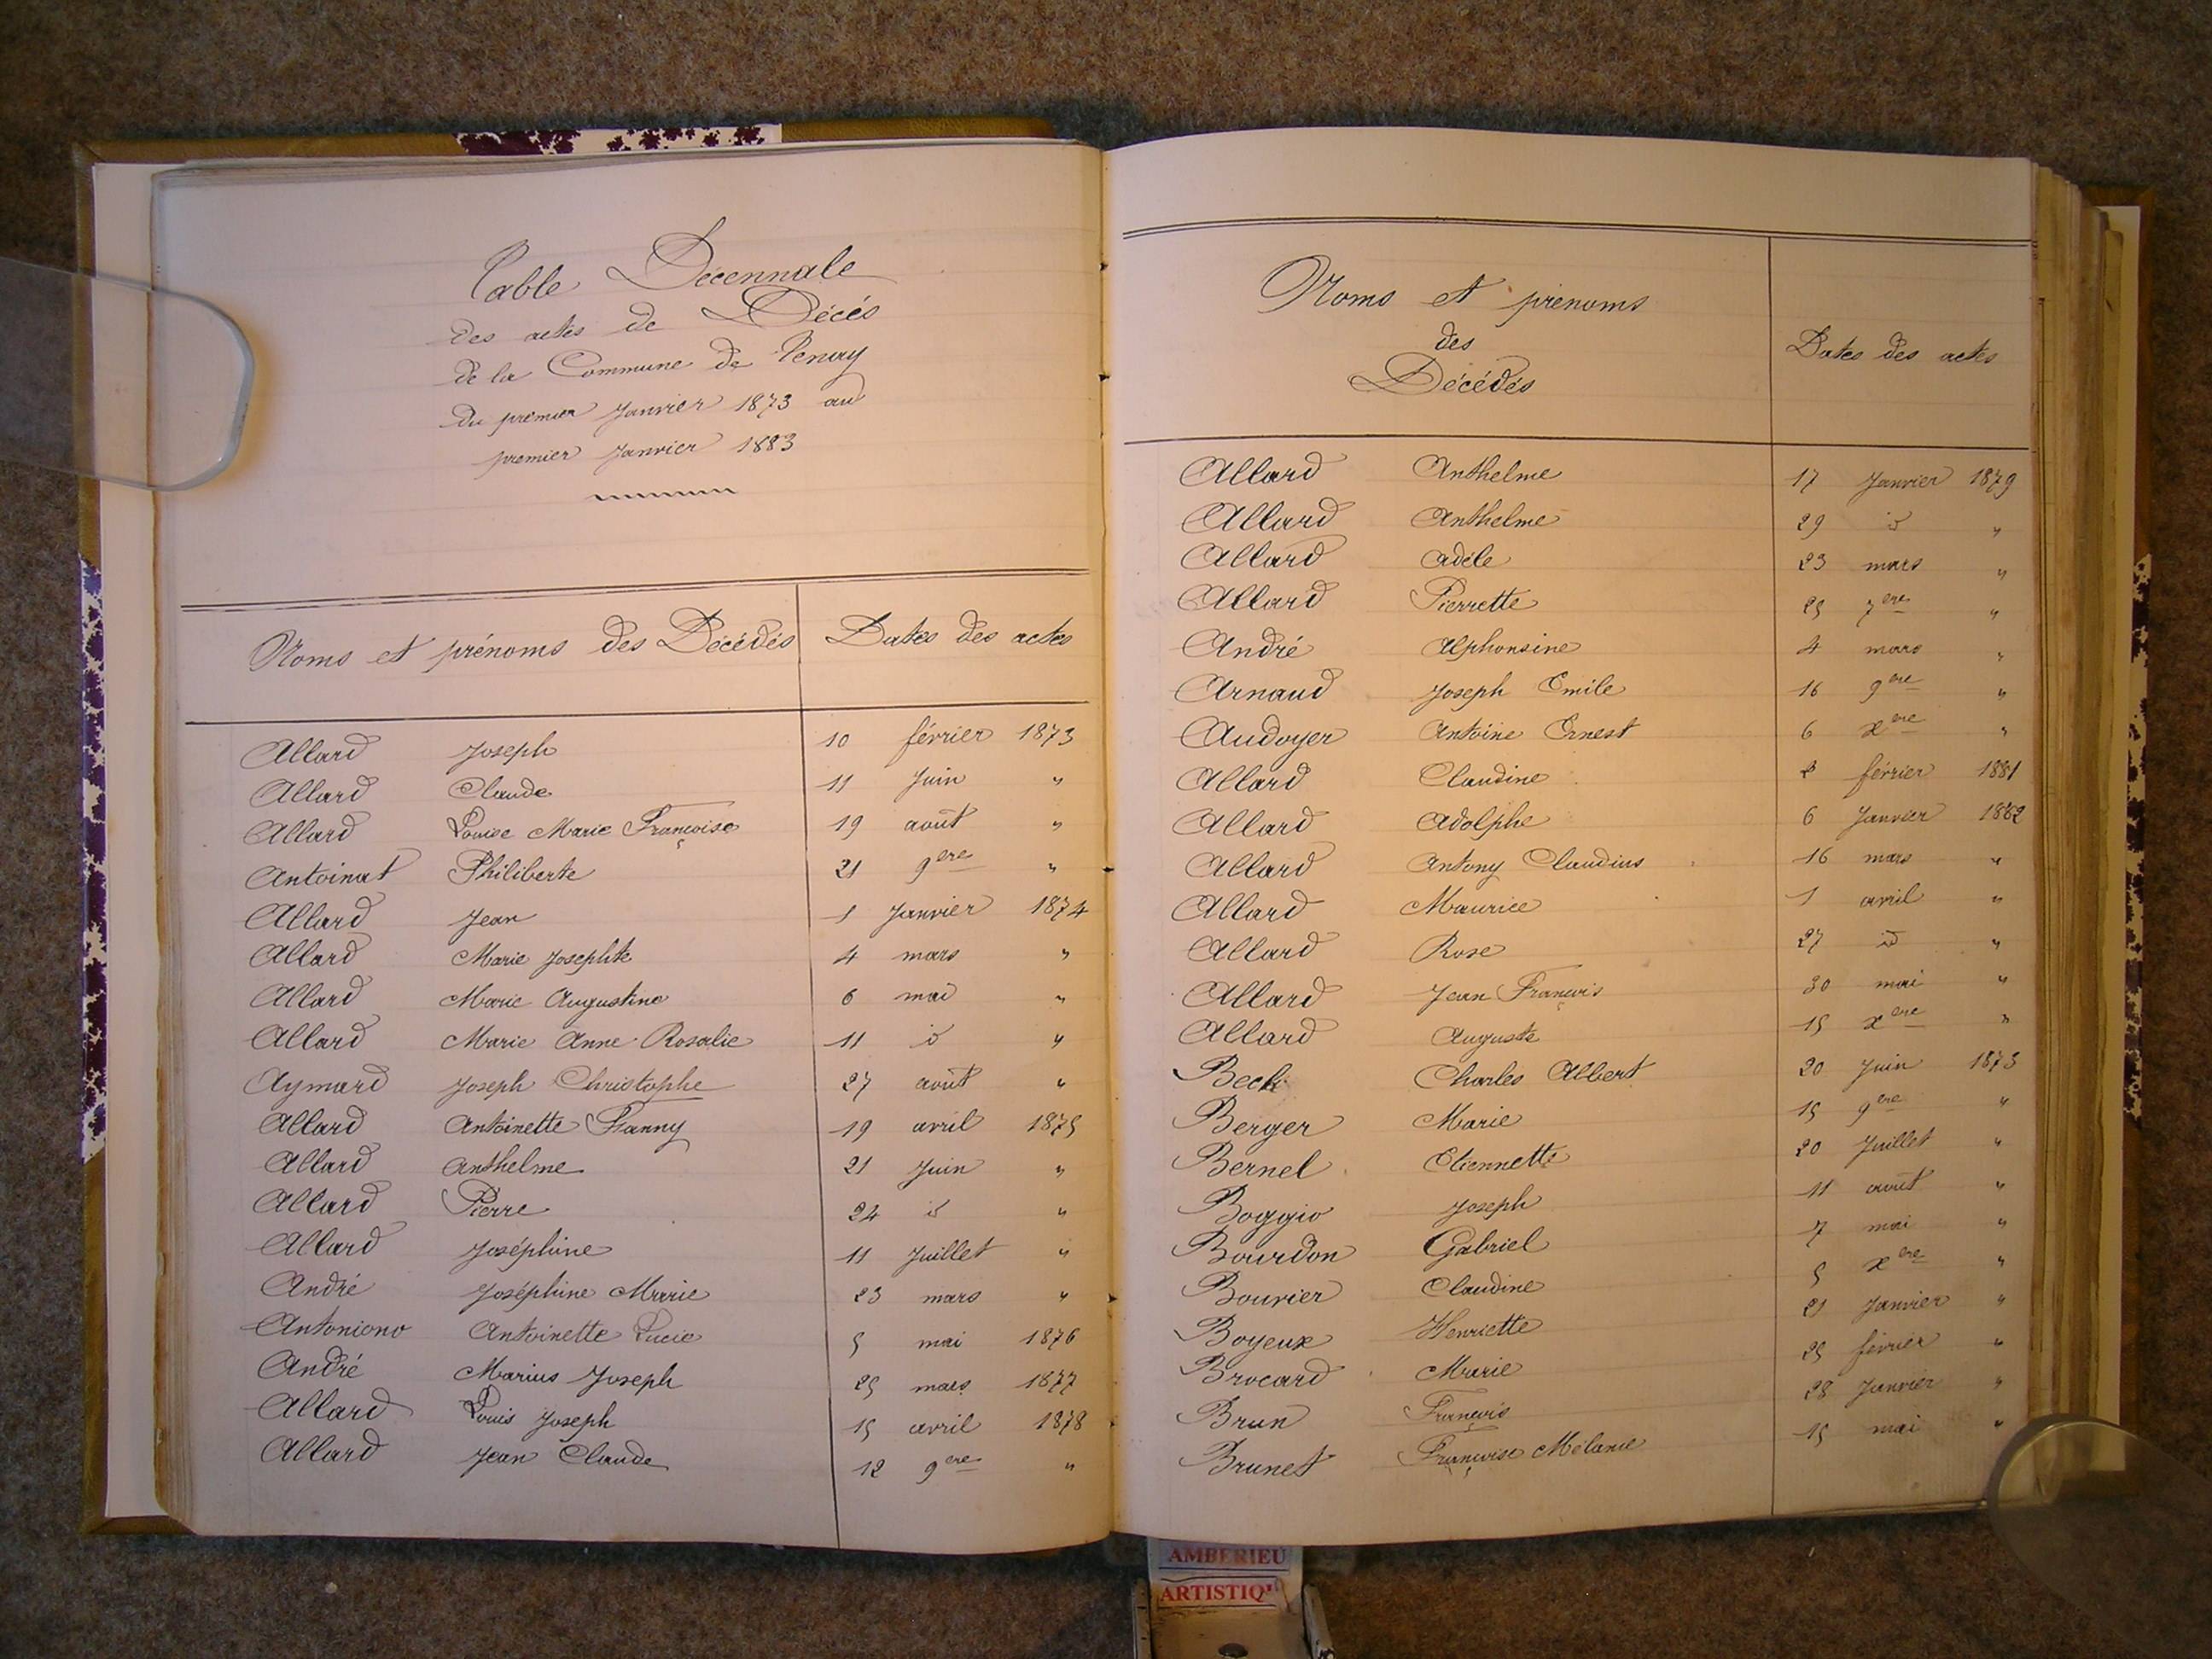 Table Décennale
des actes de Décés
de la Commune de Tenay
du premier Janvier 1873 au
premier Janvier 1883
Noms et prénoms des Décédés Dates des actes
Allard Joseph 10 février 1873
Allard Claude 11 Juin "
Allard Louise Marie Françoise 19 août "
Antoinat Philiberte 21 9ere "
Allard Jean 1 Janvier 1874
Allard Marie Josephte 4 mars "
Allard Marie Augustine 6 mai "
Allard Marie Anne Rosalie 11 id "
Aymard Joseph Christophe 27 août "
Allard Antoinette Fanny 19 avril 1875
Allard Anthelme 21 Juin "
Allard Pierre 24 id "
Allard Joséphine 11 Juillet "
André Joséphine Marie 23 mars "
Antoniono Antoinette Lucie 5 mai 1876
André Marius Joseph 25 mars 1877
Allard Louis Joseph 15 avril 1878
Allard Jean Claude 12 9ere "
Noms et prénoms
des
Décédés
Dates des actes
Allard Anthelme 17 Janvier 1879
Allard Anthelme 29 id "
Allard Adèle 23 mars "
Allard Pierrette 25 7ere "
André Alphonsine 4 mars "
Arnaud Joseph Emile 16 9ere "
Audoyer Antoine Ernest 6 xere "
Allard Claudine février 1881
Allard Adolphe 6 Janvier 1882
Allard Antony Claudius 16 mars "
Allard Maurice 1 avril "
Allard Rose 27 id "
Allard Jean François 30 mai "
Allard Auguste 15 xere "
Beck Charles Albert 20 Juin 1873
Berger Marie 15 9ere "
Bernel Etiennette 20 Juillet "
Boggio Joseph 11 août "
Bourdon Gabriel 7 mai "
Bouvier Claudine 5 xere "
Boyeux Henriette 21 Janvier "
Brocard Marie 25 février "
Brun François 28 Janvier "
Brunet Françoise Mélanie 15 mai "
AMBERIEU